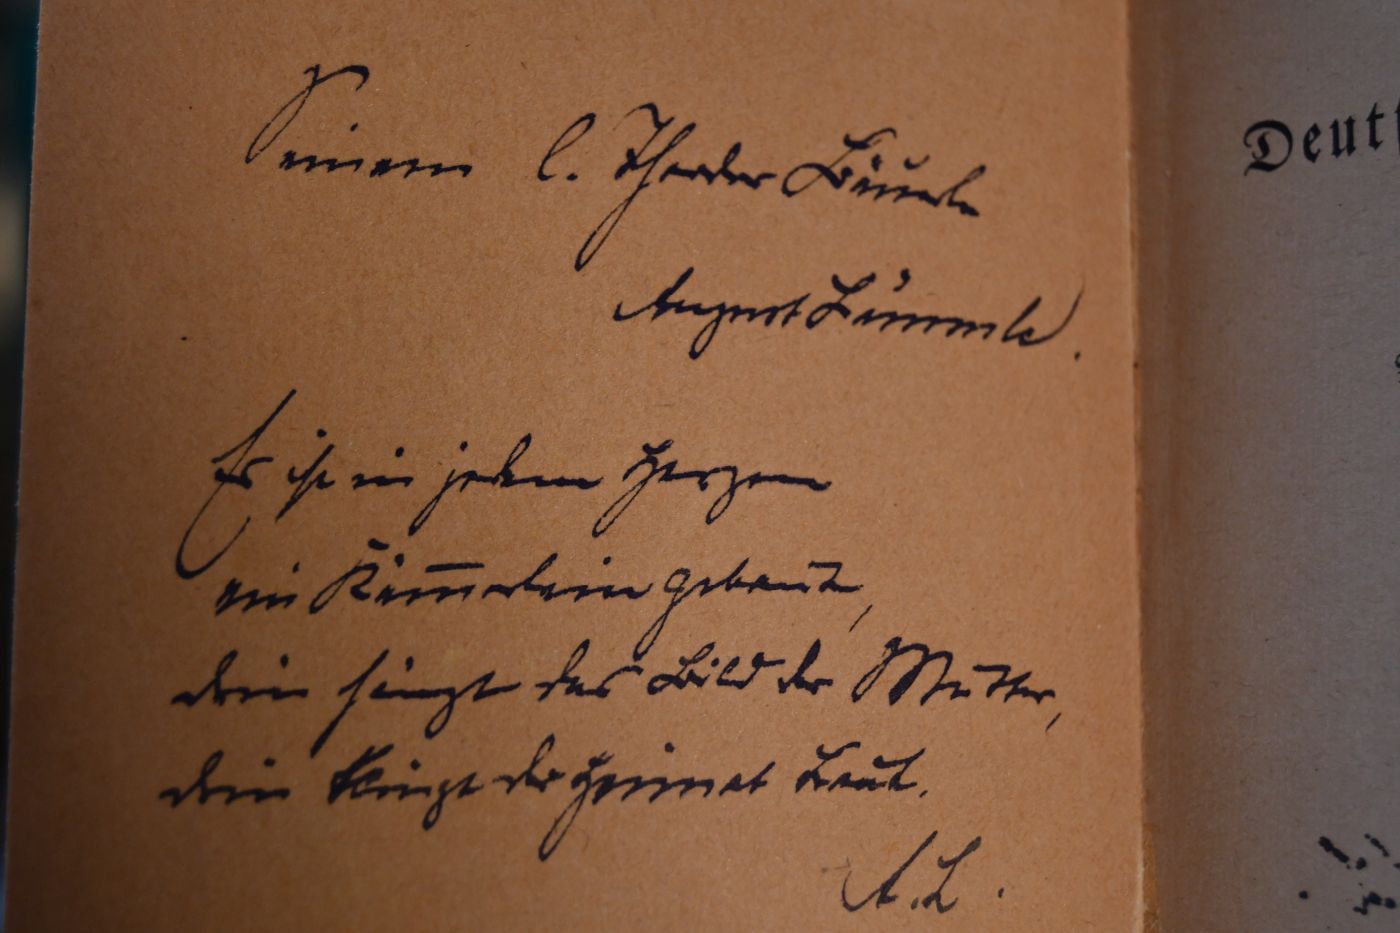 Seinem l. Theodor Bäuerle
August Lämmle.
Es ist in jedem Herzen
ein Kämmerlein gebaut,
drin hängt das Bild der Mutter,
drin klingt der Heimat Laut.
A. L.
Deut